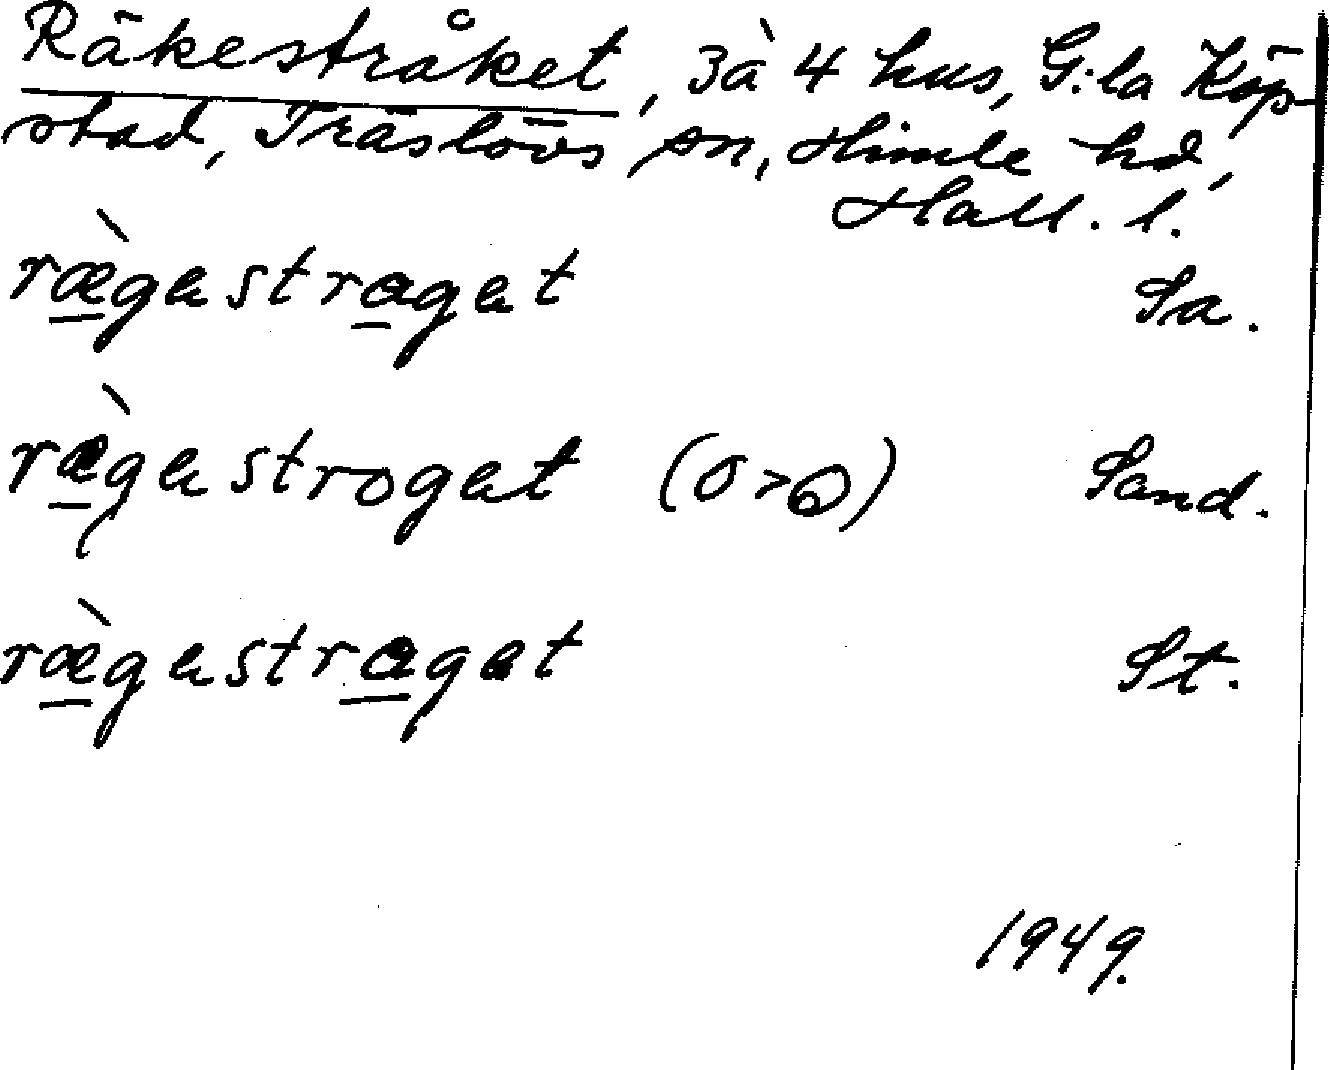 Räkestråket, 3 à 4 hus, G:la Köp-
stad, Träslövs sn, Himle hd,
Hall. l.
ræ̠̀gestrag̠et Sa.
ræ̠̀gestroget (o>ɷ) Sand.
ræ̠̀gestra̠get St.
1949.